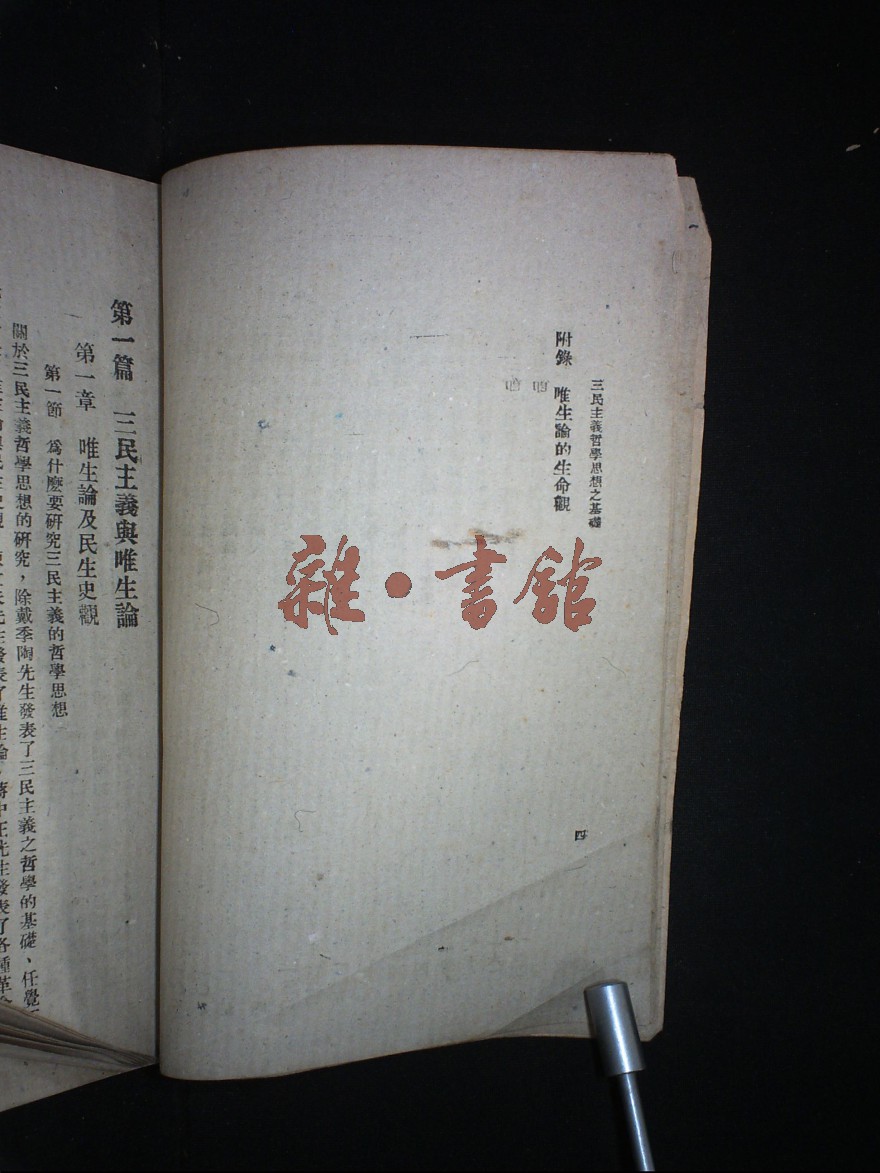 三民主義哲學思想之基礎
附錄　唯生論的生命觀
四
雜·書館
第一篇　三民主義與唯生論
第一章　唯生論及民生史觀
第一節　爲什麽要研究三民主義的哲學思想
關於三民主義哲學思想的研究，除戴季陶先生發表了三民主義之哲學的基礎、任覺
先生發表了唯生論，蔣中正先生發表了各種革